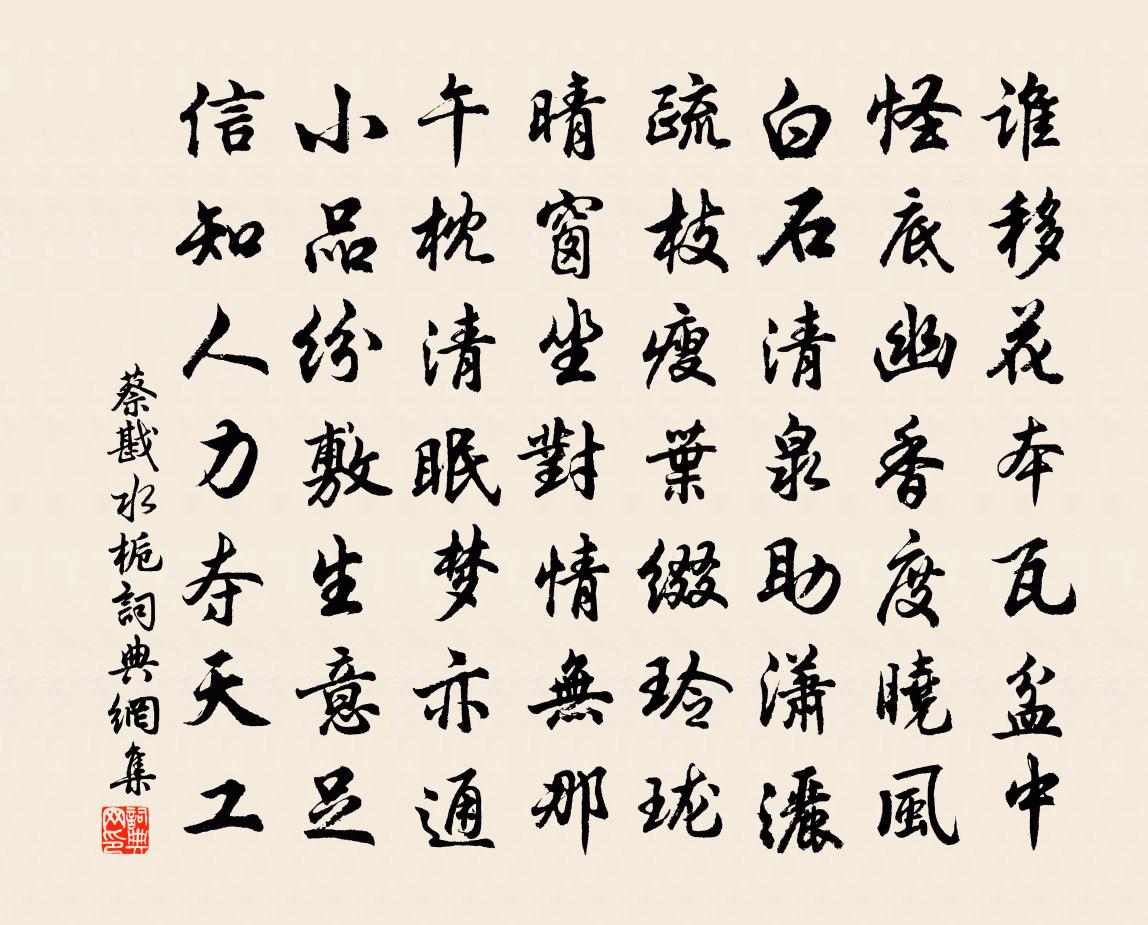 谁移花本瓦盆中
怪底幽香度曉風
白石清泉助瀟灑
疏枝瘦葉綴玲珑
晴窗坐對情無那
午枕清眠梦亦通
小品纷敷生意足
信知人力夺天工
蔡戡水栀詞典網集
詞典网印